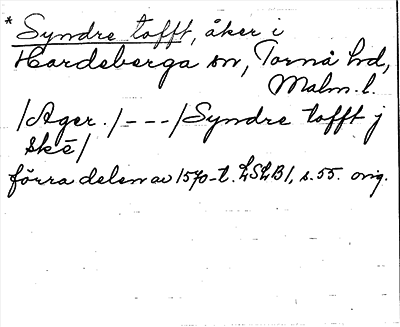 * Syndre tofft, åker i
Hardeberga sn, Torna hd,
Malm. l.
/Ager./---/Syndre tofft j
skē/
förra delen av 1570-t. LSLB1, s. 55. orig.